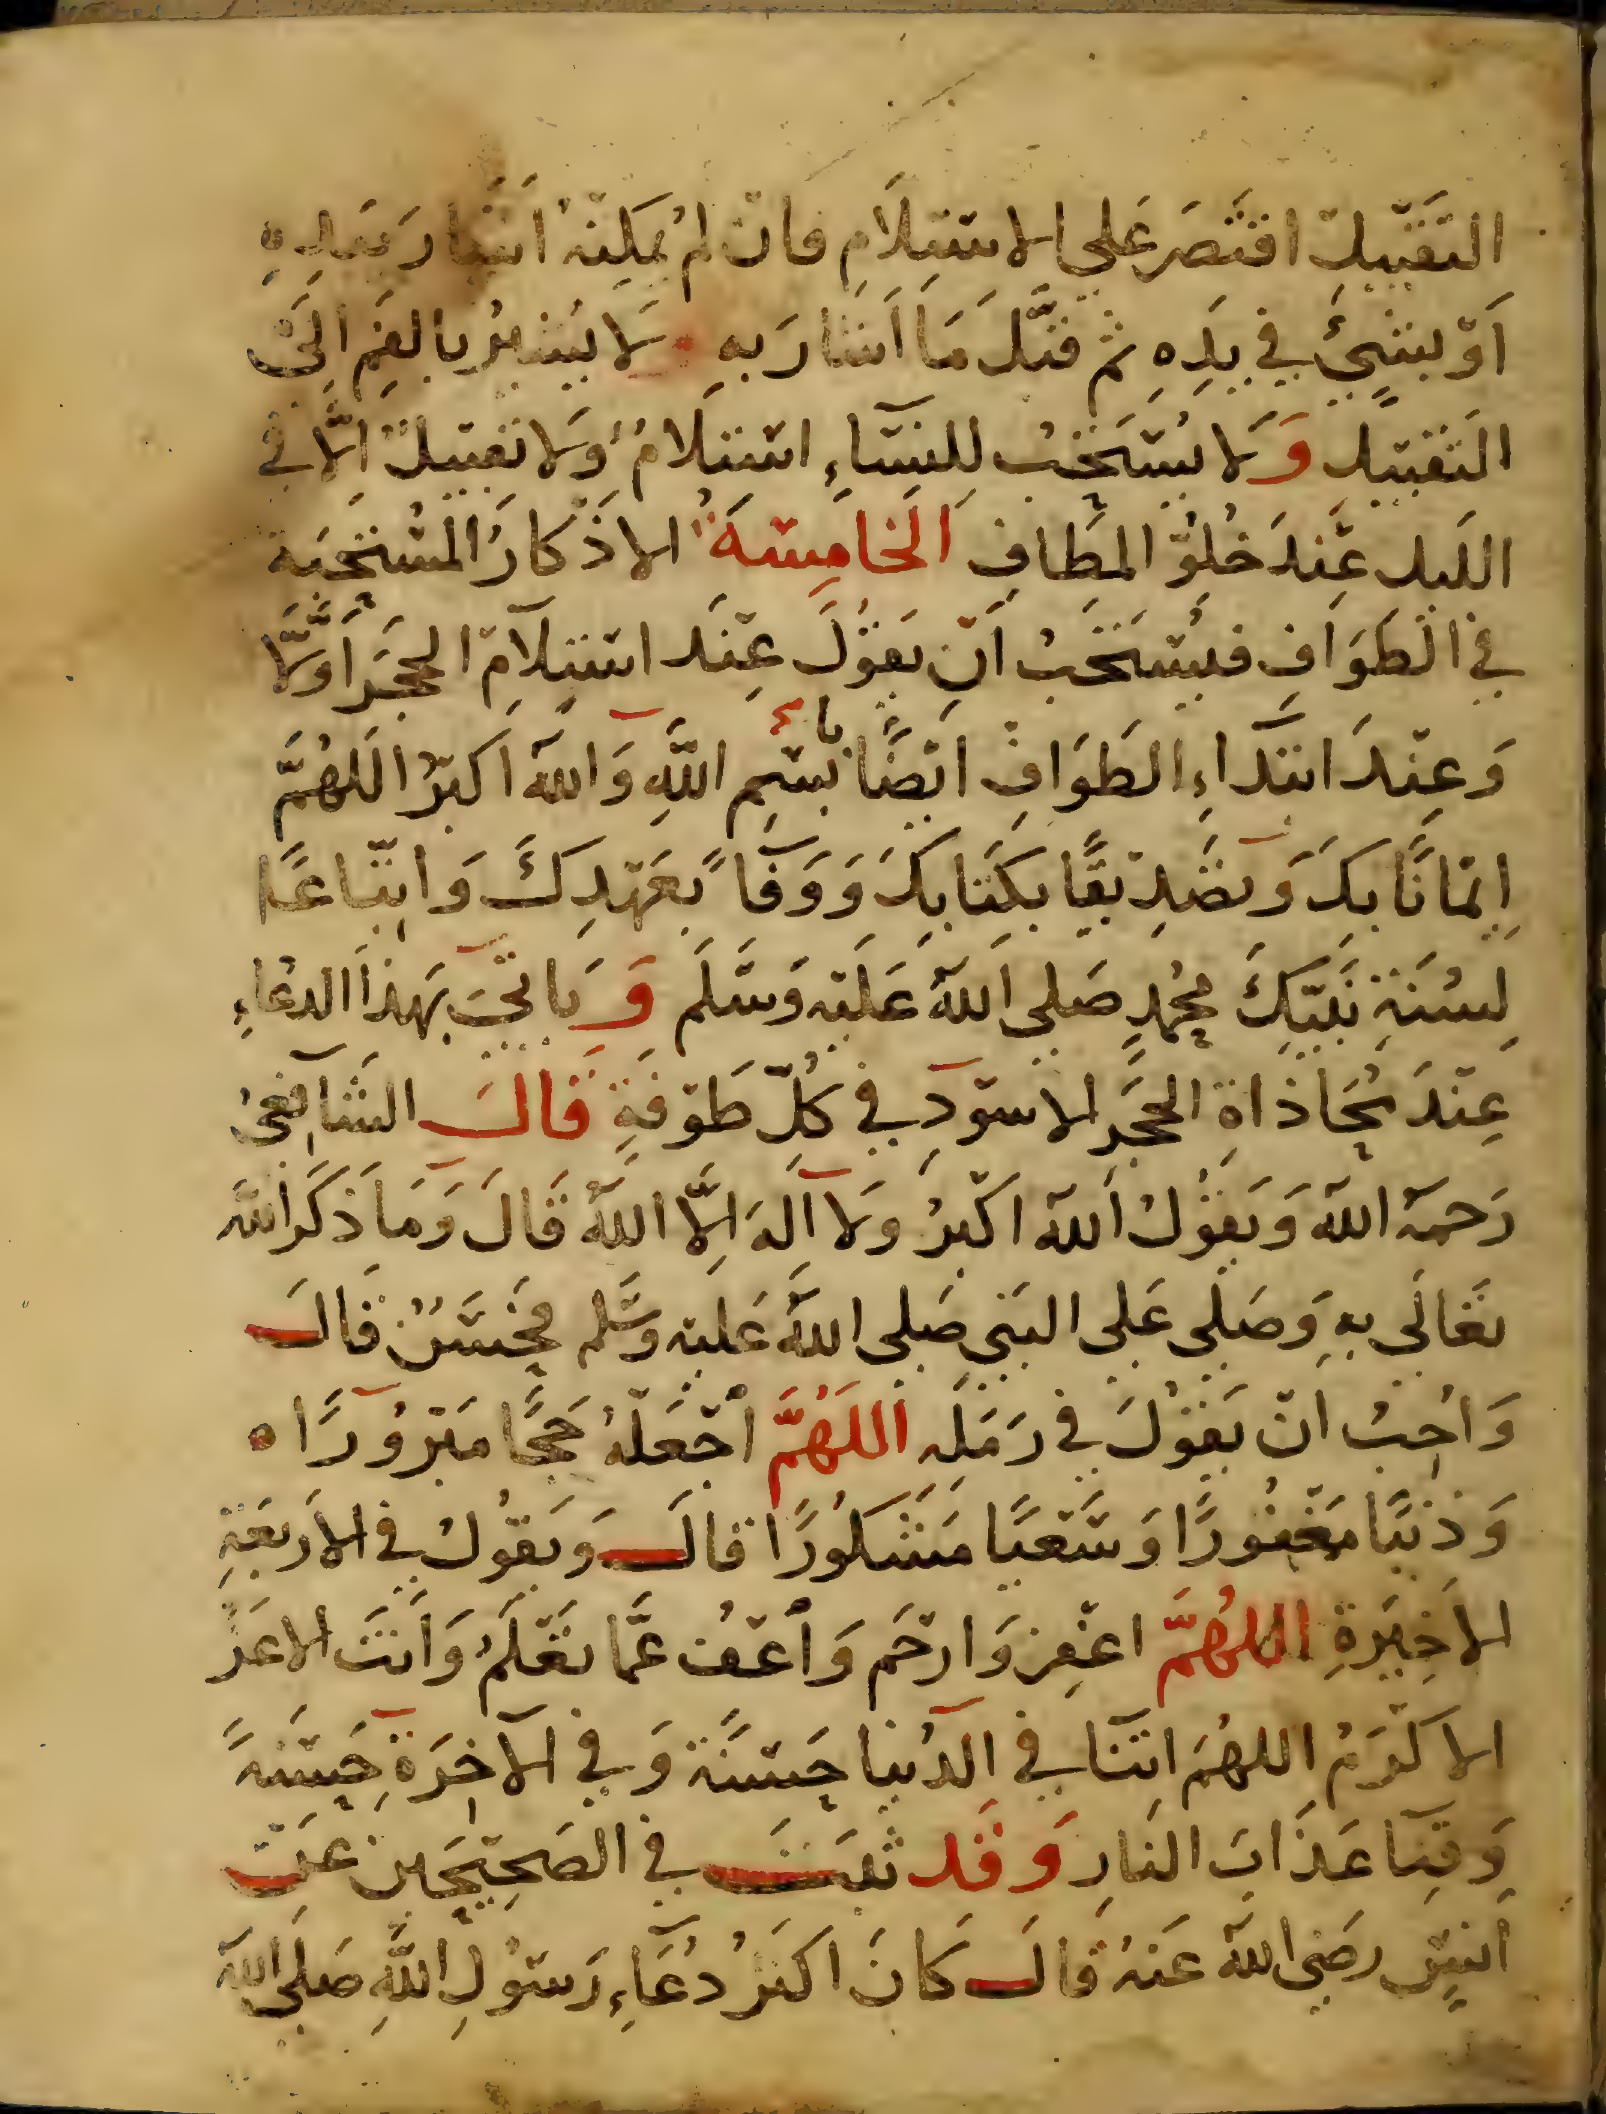 التَّقْبِيلِ اقتَصَرَ عَلى الاسْتِلَامِ فان لمْ يمكِنْهُ اَشَارَ بيَدِهِ
اَوْ بِشيْءٍ في يَدِهِ ثم قبَّلَ مَا اَشَارَ بهِ ولَا يُشِيرُ بالفَمِ اِلَى
التَقبيل وَلا يُسْتَحَبُ لِلنسَآءِ استلامٌ وَلا تقبيلٌ اِلّا في
الليل عِندَ خُلُوِّ المطَافِ الخامِسَة الاذْكارُ المسْتحَبَة
في الطَوَافِ فيُسْتَحَبُ اَنْ يَقُولَ عِنْدَ استِلَامِ الحجَرِ اَوَّلًا
وَعِنْدَ ابتدَاءِ الطَوَافِ ايْضًا بِسْمِ اللَّهِ وَاللهُ اَكبَرُ اللهُمَّ
اِيمَانًا بِكَ وَتصْدِيْقًا بكِتَابِكَ وَوَفَآءً بعَهْدِكَ وَاتِّبَاعًا
لِسُنَةِ نَبيّكَ محُمدٍ صَلى اللهُ عَليْه وَسَّلَم وَيَاتيْ بهَذا الدعَاءِ
عِنْدَ محَاذاةِ الحجَرِ الاسْوَدِ في كُلّ طَوْفَةٍ قَالَ الشَافِعيُ
رَحمهُ اللهُ وَيَقُولُ اللهُ اكْبَرُ وَلا اله اِلّا اللهُ قَالَ وَمَا ذكَرَ الله
تعَالَى بهِ وَصَلى عَلى النبَي صَلى اللهُ عَليْه وسَّلم فحَسَنٌ قال
وَاُحِبُ انْ يَقُولَ في رَمَلِهِ اللَهُمَّ اجْعَلهُ حَجًّا مَبْرُورًا
وَذنبًا مَغْفُورًا وَسَعيًا مَشكُورًا قال وَيقُولُ في الاَربَعَةِ
الاخِيَرةِ اللهُمَّ اغْفِر وَارْحَم وَاعْفُ عَمَّا تَعْلَمُ وَاَنتَ الاعَزُ
الاكْرَمُ اللهُمَ اتِنَا في الدُنيا حَسَنَة وَفي الآخِرَةِ حَسَنةً
وَقِنَا عَذَابَ النارِ وَقَد ثبَتَ في الصَحِيْحَين عَن
اَنسٍ رضَي اللهُ عَنهُ قَالَ كَانَ اكثَرُ دُعَاءِ رَسُولِ اللَّهِ صَلى الله